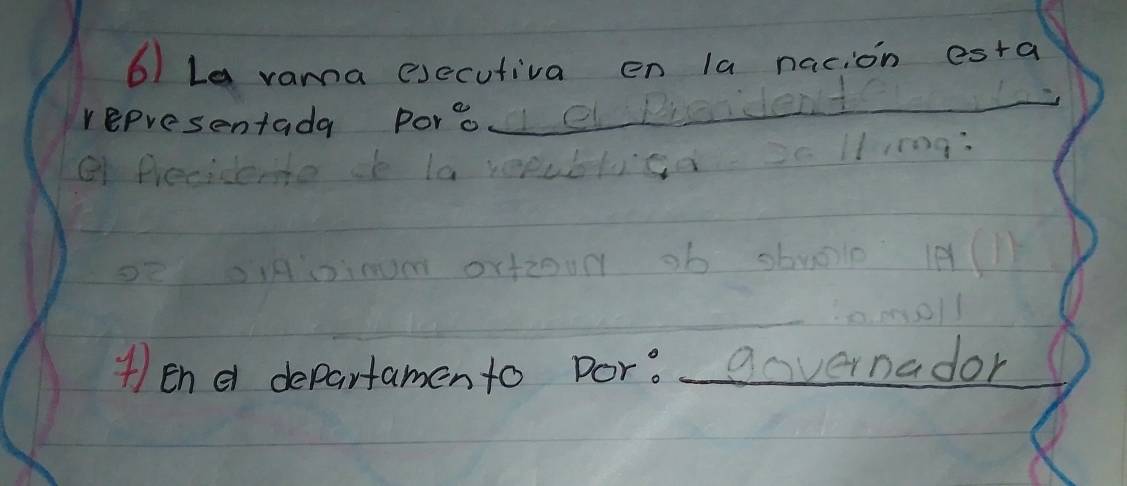 6) La rama esecutiva en la nación esta
representada por: el Precidente
el Precidente de la republica se llama:
7) En el departamento por: governador